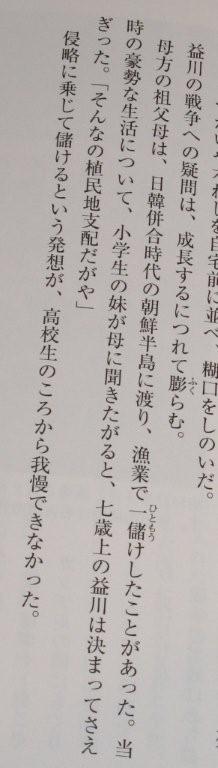 を自宅前に並べ、糊口をしのいだ。
益川の戦争への疑問は、成長するにつれて膨らむ。
母方の祖父母は、日韓併合時代の朝鮮半島に渡り、漁業で一儲けしたことがあった。当
時の豪勢な生活について、小学生の妹が母に聞きたがると、七歳上の益川は決まってさえ
ぎった。「そんなの植民地支配だがや」
侵略に乗じて儲けるという発想が、高校生のころから我慢できなかった。